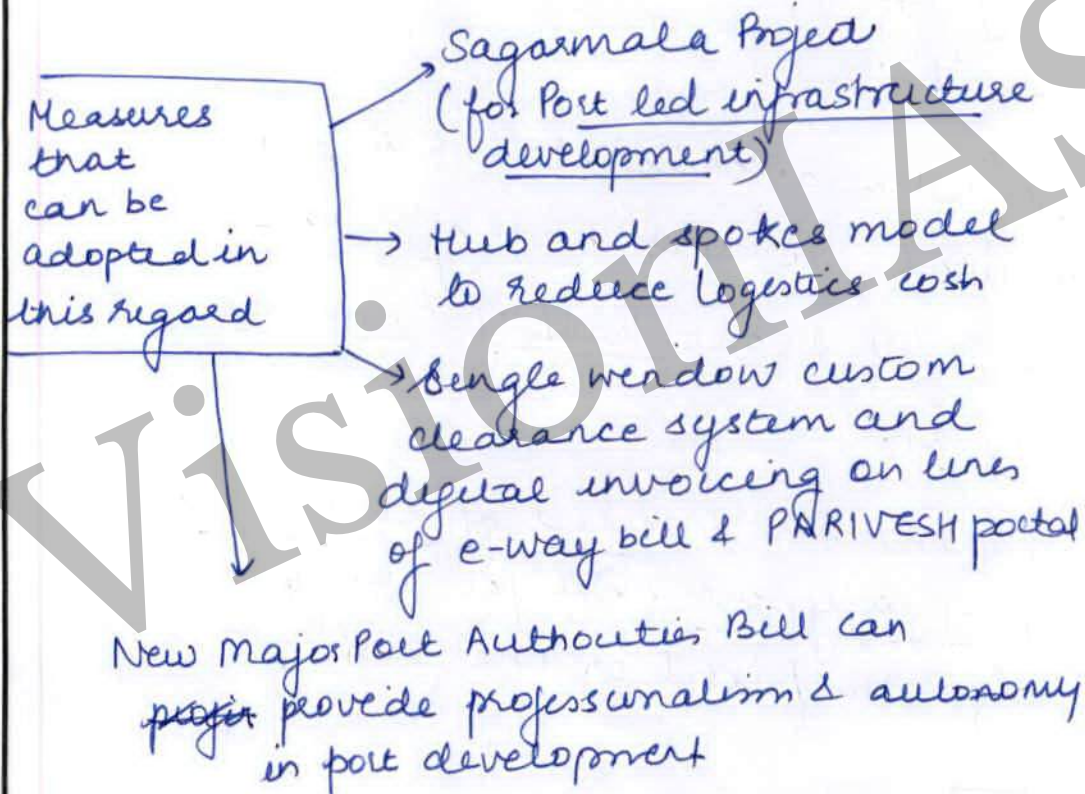 Measures
that
can be
adopted in
this regard
Sagarmala Project
(for Port led infrastructure
development)
→ Hub and spokes model
to reduce logestics cosh
Single window custom
clearance system and
digital invoicing on lines
of e-way bill & PARIVESH portal
New Major Port Authorities Bill can
provide professionalism & autonomy
in port development
VisionIAS